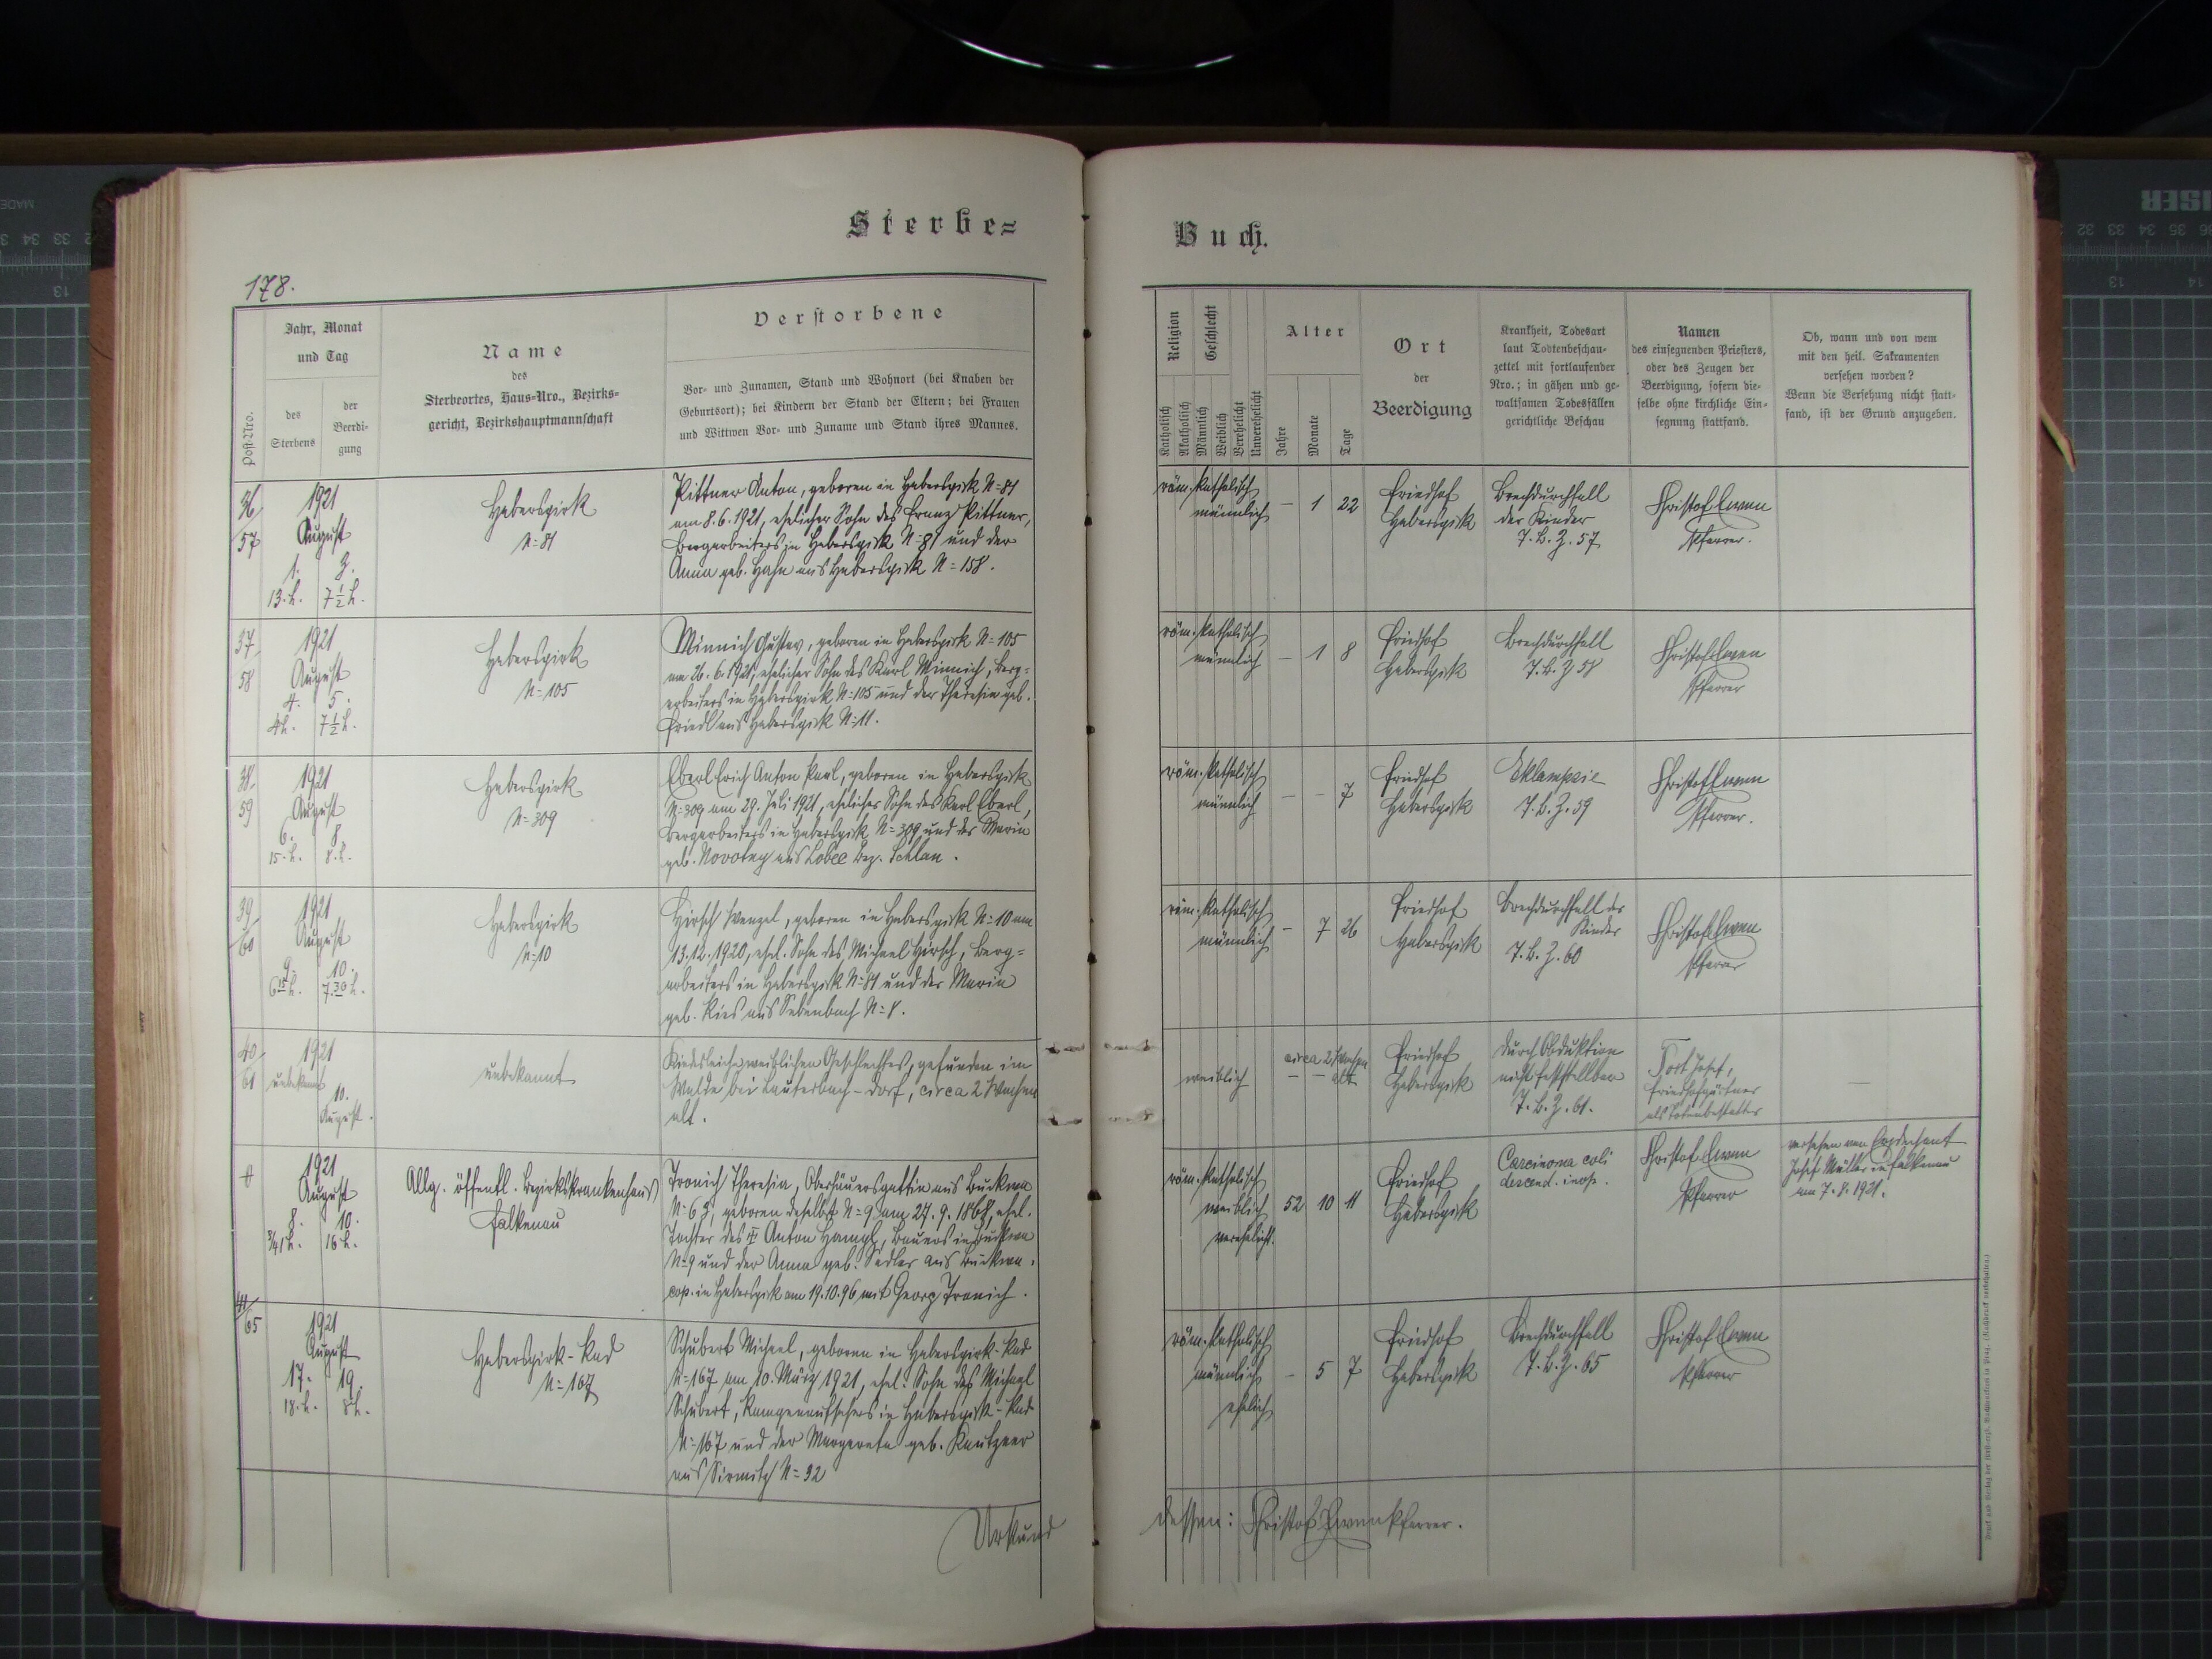 Sterbe=
Buch.
178.
Post-Nro.
Jahr, Monat
und Tag
des
Sterbens
der
Beerdi-
gung
Name
des
Sterbeortes, Haus-Nro., Bezirks=
gericht, Bezirkshauptmannschaft
Verstorbene
Vor- und Zunamen, Stand und Wohnort (bei Knaben der
Geburtsort); bei Kindern der Stand der Eltern; bei Frauen
und Wittwen Vor- und Zuname und Stand ihres Mannes.
Religion
Katholisch
Akatholisch
Geschlecht
Männlich
Weiblich
Verehelicht
Unverehelicht
Alter
Jahre
Monate
Tage
Ort
der
Beerdigung
Krankheit, Todesart
laut Todtenbeschau-
zettel mit fortlaufender
Nro.; in gähen und ge-
waltsamen Todesfällen
gerichtliche Beschau
Namen
des einsegnenden Priesters,
oder des Zeugen der
Beerdigung, sofern die-
selbe ohne kirchliche Ein-
segnung stattfand.
Ob, wann und von wem
mit den heil. Sakramenten
versehen worden?
Wenn die Versehung nicht statt-
fand, ist der Grund anzugeben.
36/57
1921
August
1. 3.
13. h. 7½ h.
Haberspirk
N=81
Pittner Anton, geboren in Haberspirk N=81
am 8.6.1921, ehelicher Sohn des Franz Pittner,
Bergarbeiters in Haberspirk N=81 und der
Anna geb. Hahn aus Haberspirk N=158.
röm. katholisch
männlich
– 1 22
Friedhof
Haberspirk
Brechdurchfall
der Kinder
T.B.Z. 57
Christof
Pfarrer.
37/58
1921
August
4. 5.
4h. 7½ h.
Haberspirk
N=105
Minnich Gustav, geboren in Haberspirk N=105
am 26.6.1921, ehelicher Sohn des Karl Minnich, Berg=
arbeiters in Haberspirk N=105 und der Theresia geb.
Friedl aus Haberspirk N=11.
röm. katholisch
männlich
– 1 8
Friedhof
Haberspirk
Brechdurchfall
T.B.Z 58
Christof
Pfarrer
38/59
1921
August
6. 8.
15. h. 8. h.
Haberspirk
N=309
Eberl Erich Anton Karl, geboren in Haberspirk
N=309 am 29. Juli 1921, ehelicher Sohn des Karl Eberl,
Bergarbeiters in Haberspirk N=309 und der Maria
geb. Novotny aus Lobec bez. Schlan.
röm. katholisch
männlich
– – 7
Friedhof
Haberspirk
Eklampsie
T.B.Z. 59
Christof
Pfarrer.
39/60
1921
August
9. 10.
6 15 h. 7.30 h.
Haberspirk
N=10
Hirsch Wenzel, geboren in Haberspirk N=10 am
13.12.1920, ehel. Sohn des Michael Hirsch, Berg=
arbeiters in Haberspirk N=81 und der Maria
geb. Ries aus Sebenbach N=8.
röm. katholisch
männlich
– 7 26
Friedhof
Haberspirk
Brechdurchfall der
Kinder
T.B.Z. 60
Christof
Pfarrer
40/61
1921
unbekannt
10.
August.
unbekannt
Kindesleiche weiblichen Geschlechtes, gefunden im
Walde bei Lauterbach-Dorf, circa 2 Wochen
alt.
weiblich
circa 2 Wochen
alt
Friedhof
Haberspirk
durch Obduktion
nicht feststellbar
T.B.Z. 61.
Tort Josef,
Friedhofgärtner
als Totenbestatter
—
1921
August
8. 10.
¾1 h. 16 h.
Allg. öffentl. Bezirkskrankenhaus
Falkenau
Tronich Theresia, Oberhäuersgattin aus Buckwa
N=63, geboren daselbst N=9 am 27.9.1868, ehel.
Tochter des Anton Hampl, Bauers in Buckwa
N=9 und der Anna geb. Sedler aus Buckwa.
cop. in Haberspirk am 19.10.96 mit Georg Tronich.
röm. katholisch
weiblich
verehelicht.
52 10 11
Friedhof
Haberspirk
Carcinoma coli
descend. inop.
Christof
Pfarrer
versehen von Erzdechant
Josef Müller in Falkenau
am 7.8.1921.
41/65
1921
August
17. 19.
18. h. 8h.
Haberspirk-Rad
N=167
Schubert Michael, geboren in Haberspirk-Rad
N=167 am 10. März 1921, ehel. Sohn des Michael
Schubert, in Haberspirk-Rad
N=167 und der Margareta geb. Kautzner
aus Sirmitz N=32
röm. katholisch
männlich
ehelich
– 5 7
Friedhof
Haberspirk
Brechdurchfall
T.B.Z. 65
Christof
Pfarrer
Urkund
dessen: Christof Pfarrer.